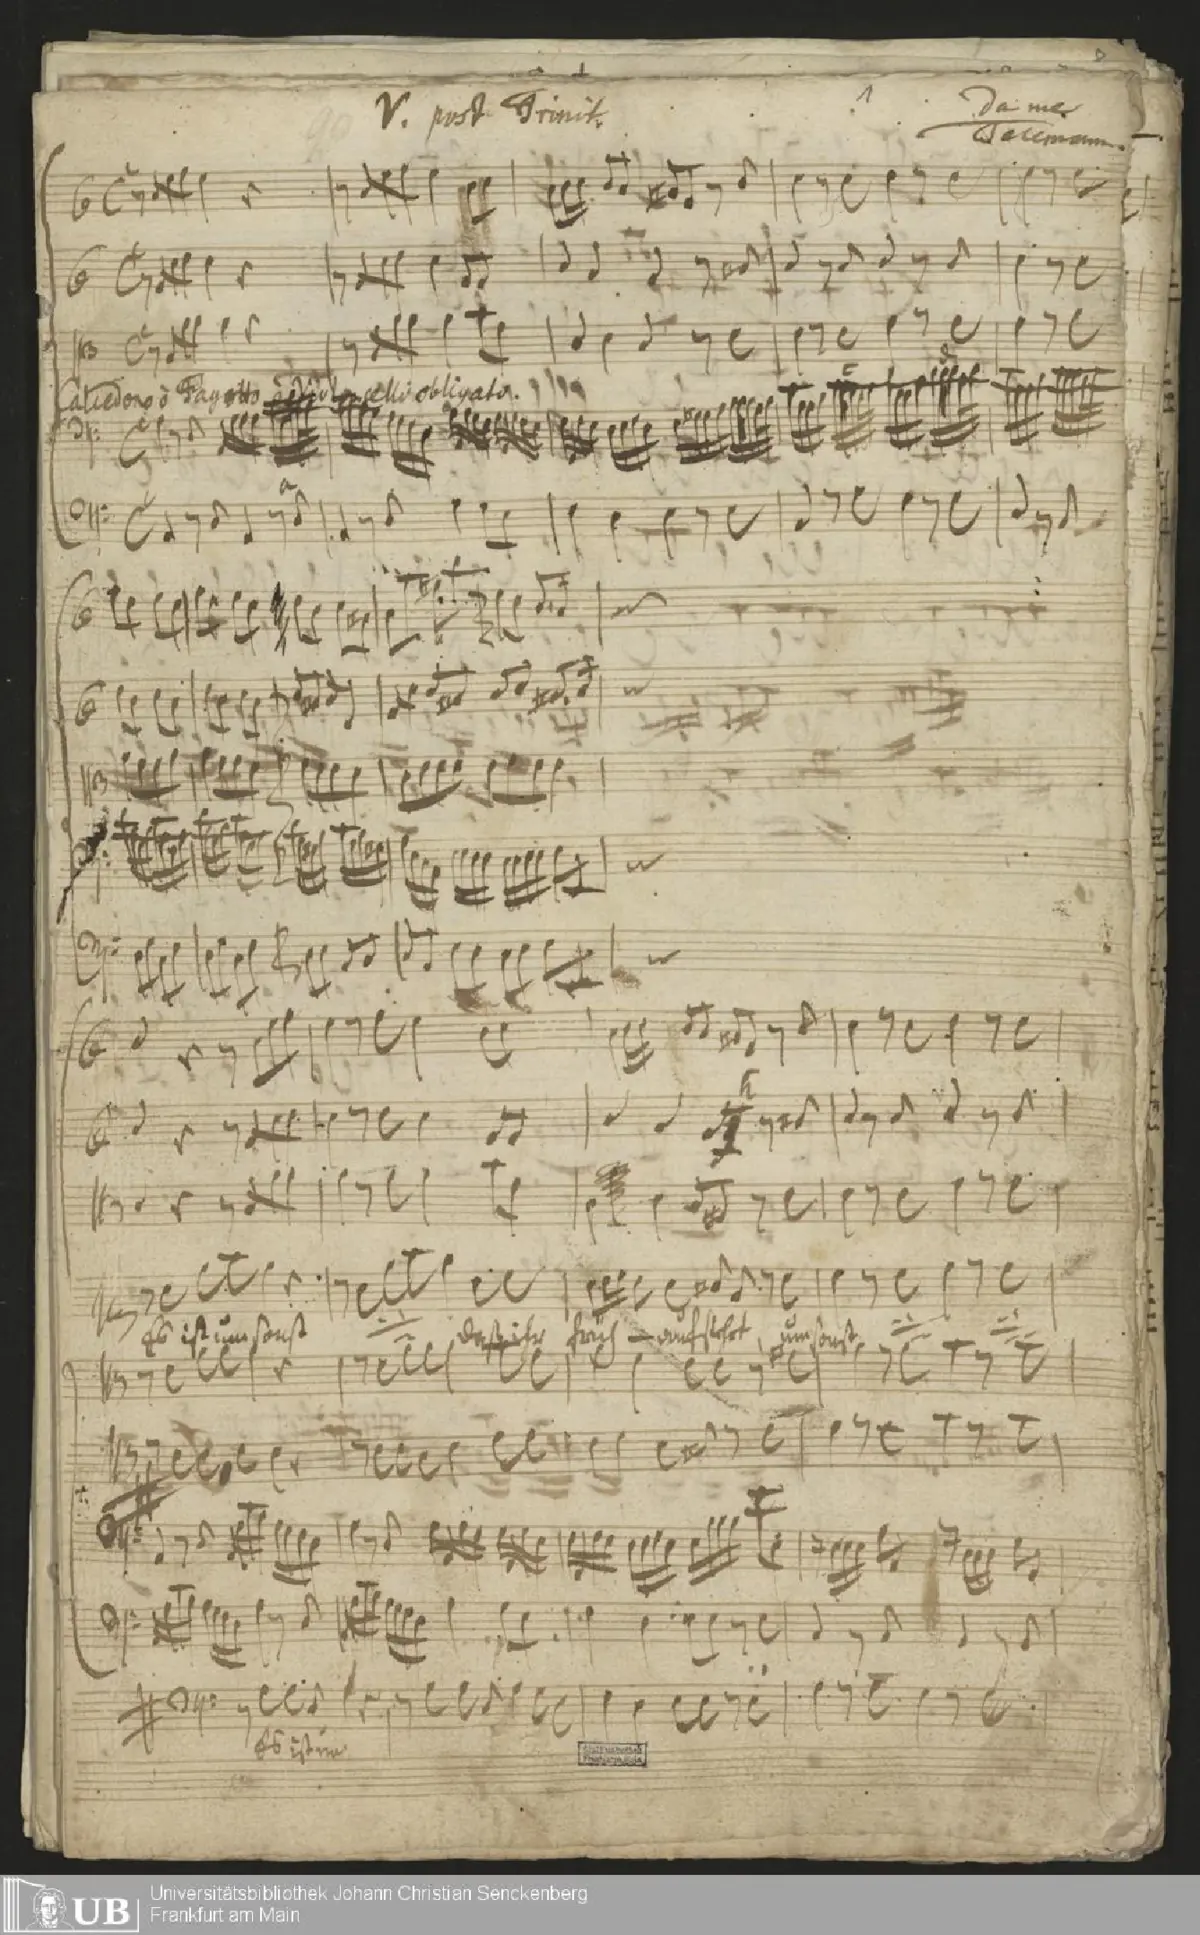 V. post Trinit.
1
Da me
Telemann.
Calcedono ò Fagotto ò Violoncello obligato.
Es ist umsonst daß ihr früh aufstehet, umsonst
Es ist um
Universitätsbibliothek Johann Christian Senckenberg
Frankfurt am Main
UB